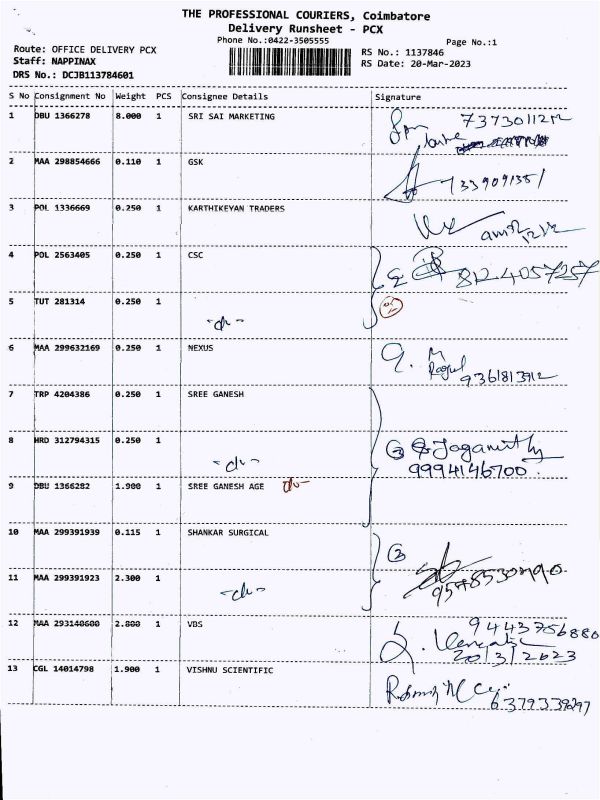 THE PROFESSIONAL COURIERS, Coimbatore
Delivery Runsheet - PCX
Phone No.:0422-3505555
Page No.:1
Route: OFFICE DELIVERY PCX
RS No.: 1137846
Staff: NAPPINAX
RS Date: 20-Mar-2023
DRS No.: DCJB113784601
S No Consignment No Weight PCS Consignee Details Signature
1 DBU 1366278 8.000 1 SRI SAI MARKETING
2 MAA 298854666 0.110 1 GSK
3 POL 1336669 0.250 1 KARTHIKEYAN TRADERS
4 POL 2563405 0.250 1 CSC 8124057257
5 TUT 281314 0.250 1
-do-
6 MAA 299632169 0.250 1 NEXUS
9361813912
7 TRP 4204386 0.250 1 SREE GANESH
8 HRD 312794315 0.250 1
-do- 3
9994146700
9 DBU 1366282 1.900 1 SREE GANESH AGE do-
10 MAA 299391939 0.115 1 SHANKAR SURGICAL
2
11 MAA 299391923 2.300 1
-do-
12 MAA 293140600 2.800 1 VBS 9443756880
20/3/2023
13 CGL 14014798 1.900 1 VISHNU SCIENTIFIC
6379339297